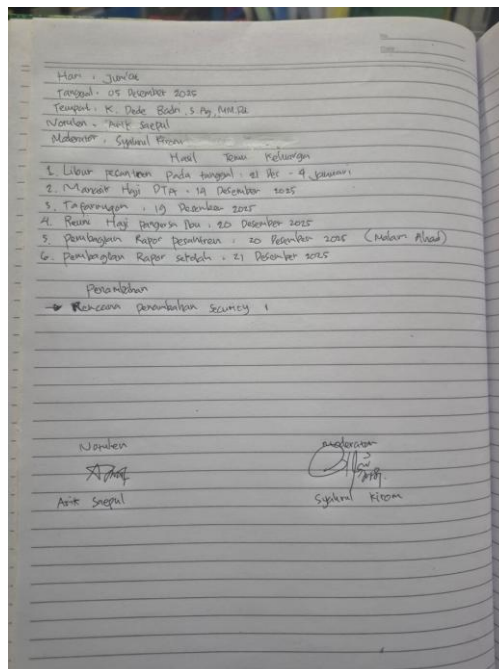 No.
Date.
Hari : Jum'at
Tanggal : 05 Desember 2025
Tempat : K. Dede Badri, S.Ag, MM.Pd
Notulen : Arif Saepul
Moderator : Syahrul Kirom
Hasil Temu Keluarga
1. Libur pesantren pada tanggal : 21 Des - 4 Januari
2. Manasik Haji DTA : 14 Desember 2025
3. Tafaruqan : 19 Desember 2025
4. Reuni Haji pangersa Ibu : 20 Desember 2025
5. Pembagian Rapor pesantren : 20 Desember 2025 (Malam Ahad)
6. Pembagian Rapor sekolah : 21 Desember 2025
→ Rencana penambahan Security 1
Notulen
Moderator
Arif Saepul
Syahrul Kirom